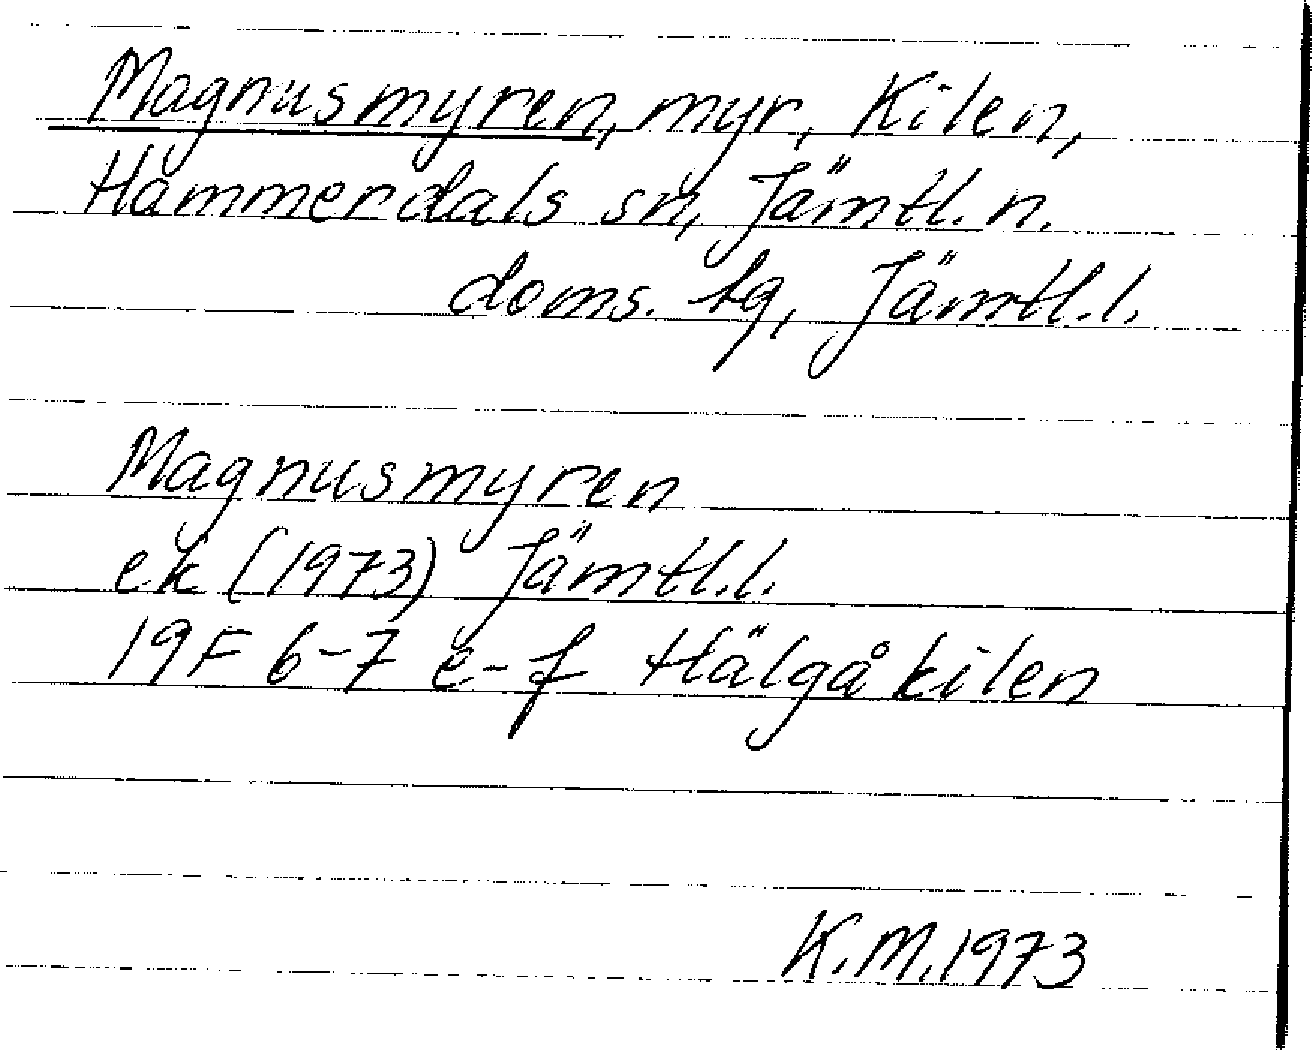 Magnusmyren, myr, Kilen,
Hammerdals sn, Jämtl. n.
doms. tg, Jämtl. l.
Magnusmyren
ek (1973) Jämtl. l.
19F 6-7 e-f Hälgåkilen
K.M. 1973